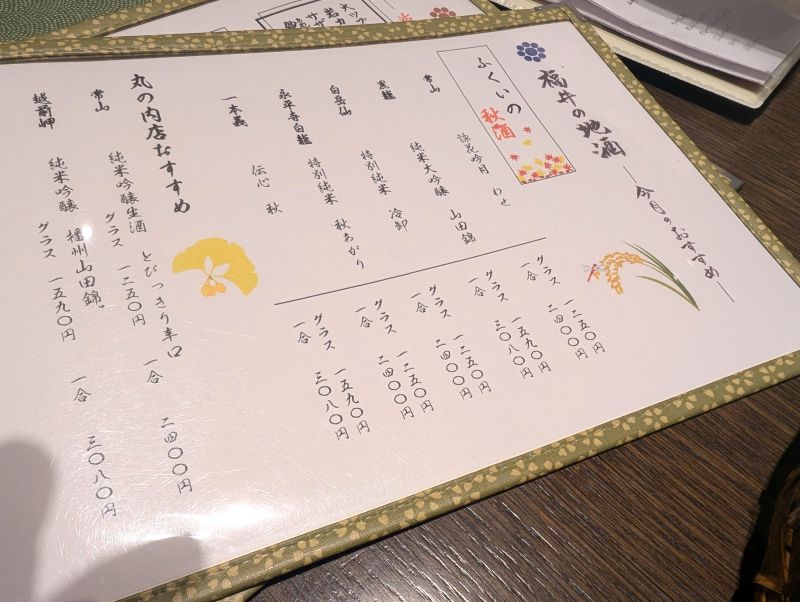 福井の地酒
―今月のおすすめ―
ふくいの
秋酒
常山 詠花吟月 わせ グラス 一二五〇円
一合 二四〇〇円
黒龍 純米大吟醸 山田錦 グラス 一五九〇円
一合 三〇八〇円
白岳仙 特別純米 冷卸 グラス 一二五〇円
一合 二四〇〇円
永平寺白龍 特別純米 秋あがり グラス 一二五〇円
一合 二四〇〇円
一本義 伝心 秋 グラス 一五九〇円
一合 三〇八〇円
丸の内店おすすめ
常山 純米吟醸生酒 とびっきり辛口
グラス 一二五〇円 一合 二四〇〇円
越前岬 純米吟醸 播州山田錦
グラス 一五九〇円 一合 三〇八〇円